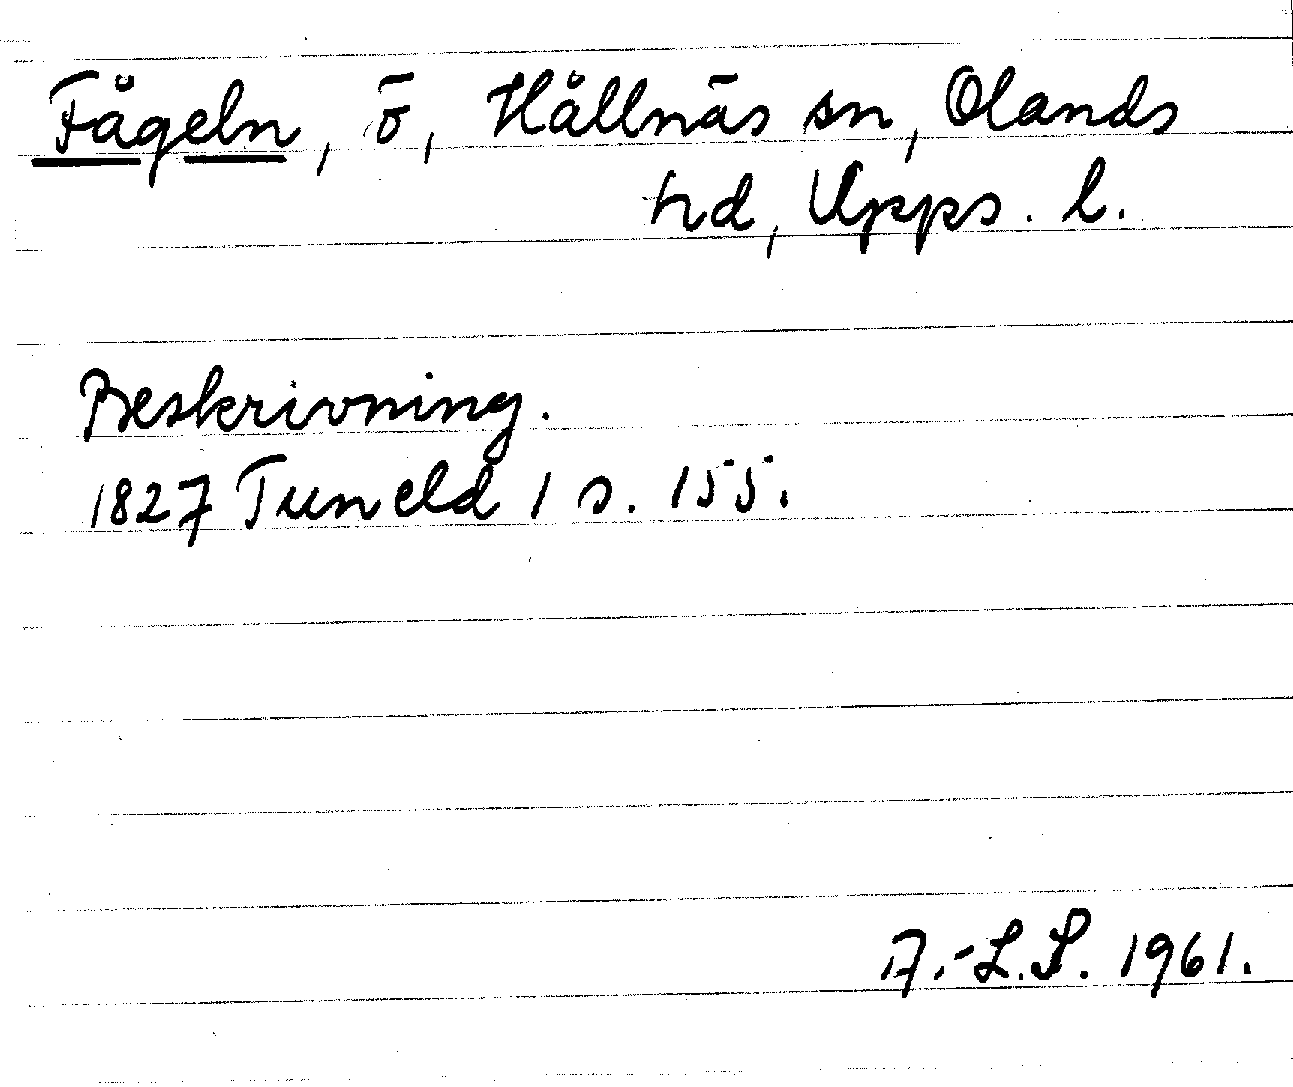 Fågeln, ö, Hållnäs sn, Olands
hd, Upps. l.
Beskrivning.
1827 Tuneld 1 s. 155.
A.-L.S. 1961.